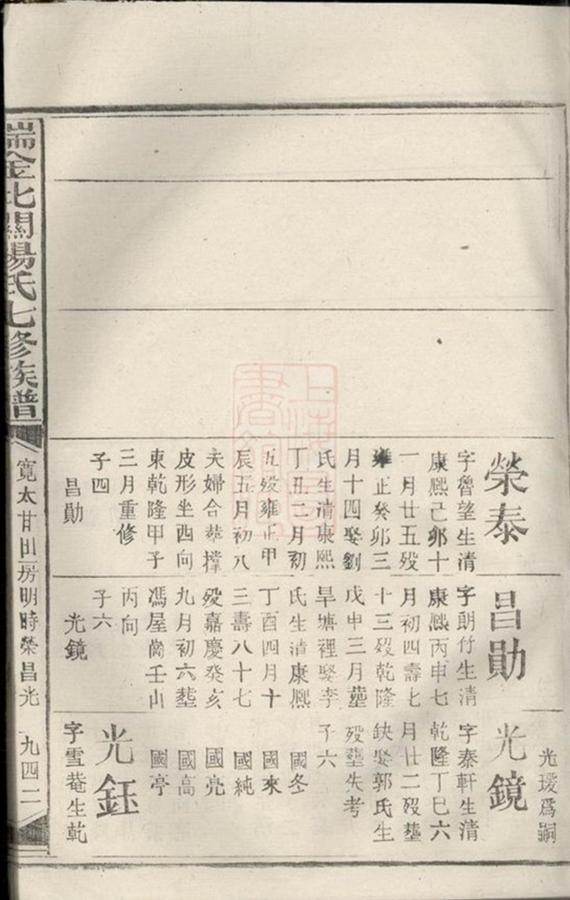 榮泰
字魯望生清
康熙己卯十
一月廿五歿
雍正癸卯三
月十四娶劉
氏生清康熙
丁丑二月初
五歿雍正甲
辰五月初八
夫婦合塟撑
皮形坐西向
東乾隆甲子
三月重修
子四
昌勛
昌勛
字朗竹生清
康熙丙申七
月初四壽七
十三歿乾隆
戊申三月塟
旱塘裡娶李
氏生清康熙
丁酉四月十
三壽八十七
歿嘉慶癸亥
九月初六塟
馮屋崗壬山
丙向
子六
光鏡
光瑷爲嗣
光鏡
字泰軒生清
乾隆丁巳六
月廿二歿塟
缺娶郭氏生
歿塟失考
子六
國冬
國來
國純
國亮
國高
國亭
光鈺
字雪菴生乾
瑞金北關楊氏七修族譜
寬太甘田房明時榮昌光 九四二